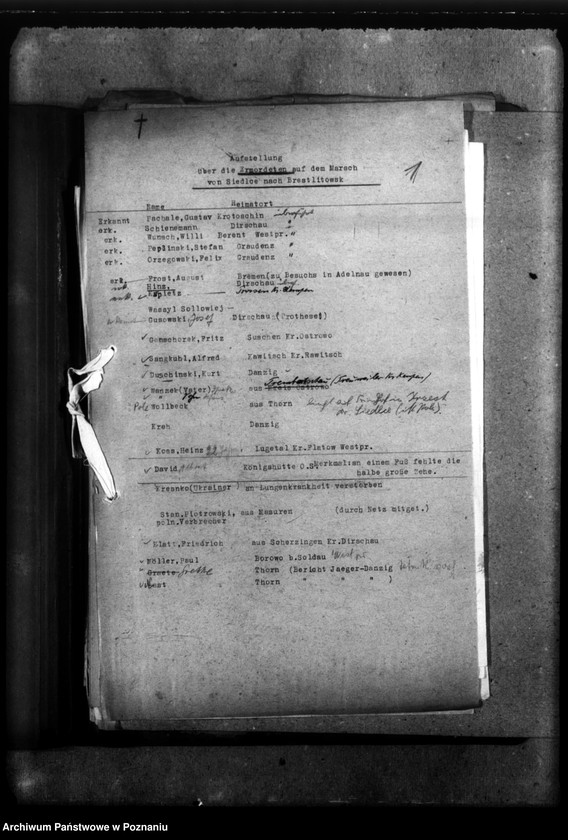 Aufstellung
über die Ermordeten auf dem Marsch
von Siedlce nach Brestlitowsk
1
Name Heimatort
Erkannt Pechale, Gustav Krotoschin
erk. Schienemann Dirschau "
erk. Wunsch, Willi Berent Westpr. "
erk. Peplinski, Stefan Graudenz "
erk. Orzegowski, Felix Graudenz "
erk. Frost, August Bremen (zu Besuchs in Adelnau gewesen)
erk. Hinz, Dirschau
erk.
Wassyl Sollowiej
Gusowski Josef Dirschau (Prothese!)
Gomschorek, Fritz Suschen Kr. Ostrowo
Sangkuhl, Alfred Rawitsch Kr. Rawitsch
Duschinski, Kurt Danzig
(Vater) aus
Pole Wollbeck aus Thorn
Kroh Danzig
Koss, Heinz Lugetal Kr. Flatow Westpr.
David, Königshütte O.S. Merkmal: an einem Fuß fehlte die
halbe große Zehe.
Kresnko (Ukrainer) an Lungenkrankheit verstorben
Stan. Piotrowski, aus Masuren (durch Netz mitget.)
poln. Verbrecher
Klatt, Friedrich aus Schersingen Kr. Dirschau
Möller, Paul Borowo b. Soldau
Thorn (Bericht Jaeger-Danzig
Thorn " " " )
Archiwum Państwowe w Poznaniu